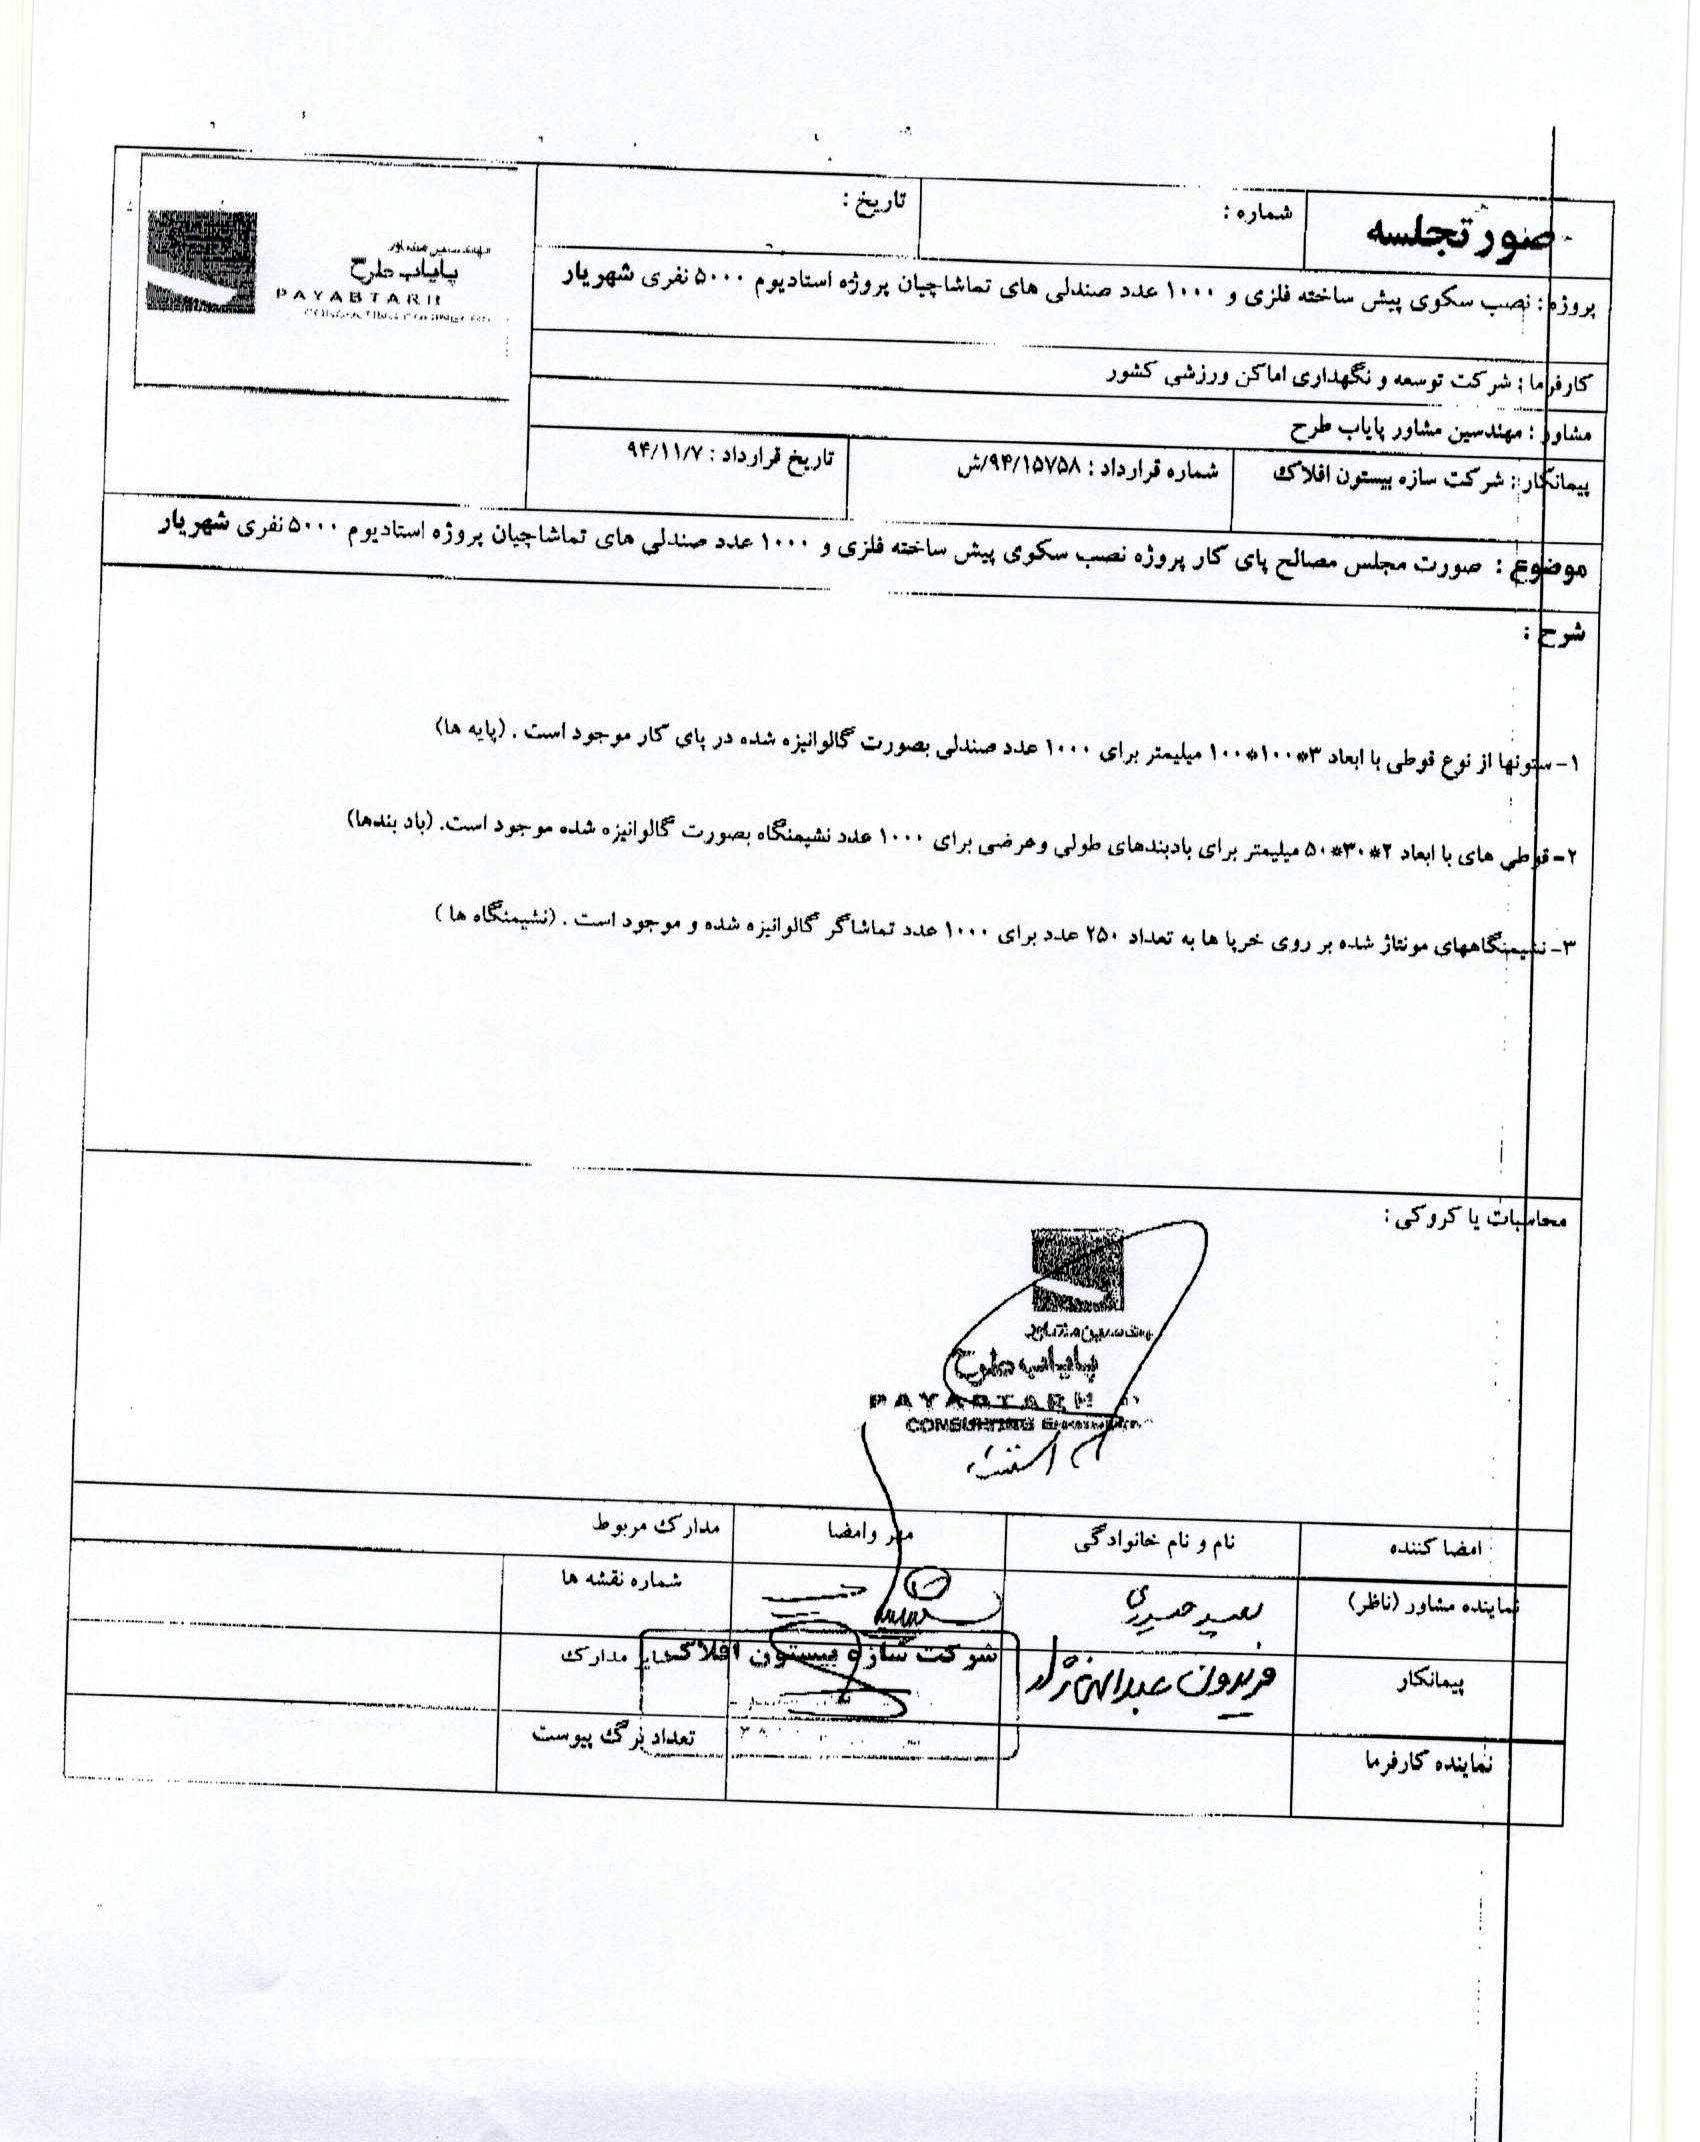 صورتجلسه
شماره :
تاریخ :
مهندسین مشاور
پایاب طرح
PAYABTARH
CONSULTING ENGINEERS
پروژه : نصب سکوی پیش ساخته فلزی و ۱۰۰۰ عدد صندلی های تماشاچیان پروژه استادیوم ۵۰۰۰ نفری شهریار
کارفرما : شرکت توسعه و نگهداری اماکن ورزشی کشور
مشاور : مهندسین مشاور پایاب طرح
پیمانکار : شرکت سازه بیستون افلاک
شماره قرارداد : ۹۴/۱۵۷۵۸/ش
تاریخ قرارداد : ۹۴/۱۱/۷
موضوع : صورت مجلس مصالح پای کار پروژه نصب سکوی پیش ساخته فلزی و ۱۰۰۰ عدد صندلی های تماشاچیان پروژه استادیوم ۵۰۰۰ نفری شهریار
شرح :
۱- ستونها از نوع قوطی با ابعاد ۳*۱۰۰*۱۰۰ میلیمتر برای ۱۰۰۰ عدد صندلی بصورت گالوانیزه شده در پای کار موجود است . (پایه ها)
۲- قوطی های با ابعاد ۲*۳۰*۵۰ میلیمتر برای بادبندهای طولی وعرضی برای ۱۰۰۰ عدد نشیمنگاه بصورت گالوانیزه شده موجود است. (باد بندها)
۳- نشیمنگاههای مونتاژ شده بر روی خرپا ها به تعداد ۲۵۰ عدد برای ۱۰۰۰ عدد تماشاگر گالوانیزه شده و موجود است . (نشیمنگاه ها )
محاسبات یا کروکی :
مهندسین مشاور
پایاب طرح
PAYABTARH
CONSULTING
امضا کننده
نام و نام خانوادگی
مهر وامضا
مدارک مربوط
نماینده مشاور (ناظر)
حیدری
شماره نقشه ها
پیمانکار
فریدون عبدالهی نژاد
شرکت سازه بیستون افلاک
سایر مدارک
نماینده کارفرما
تعداد برگ پیوست